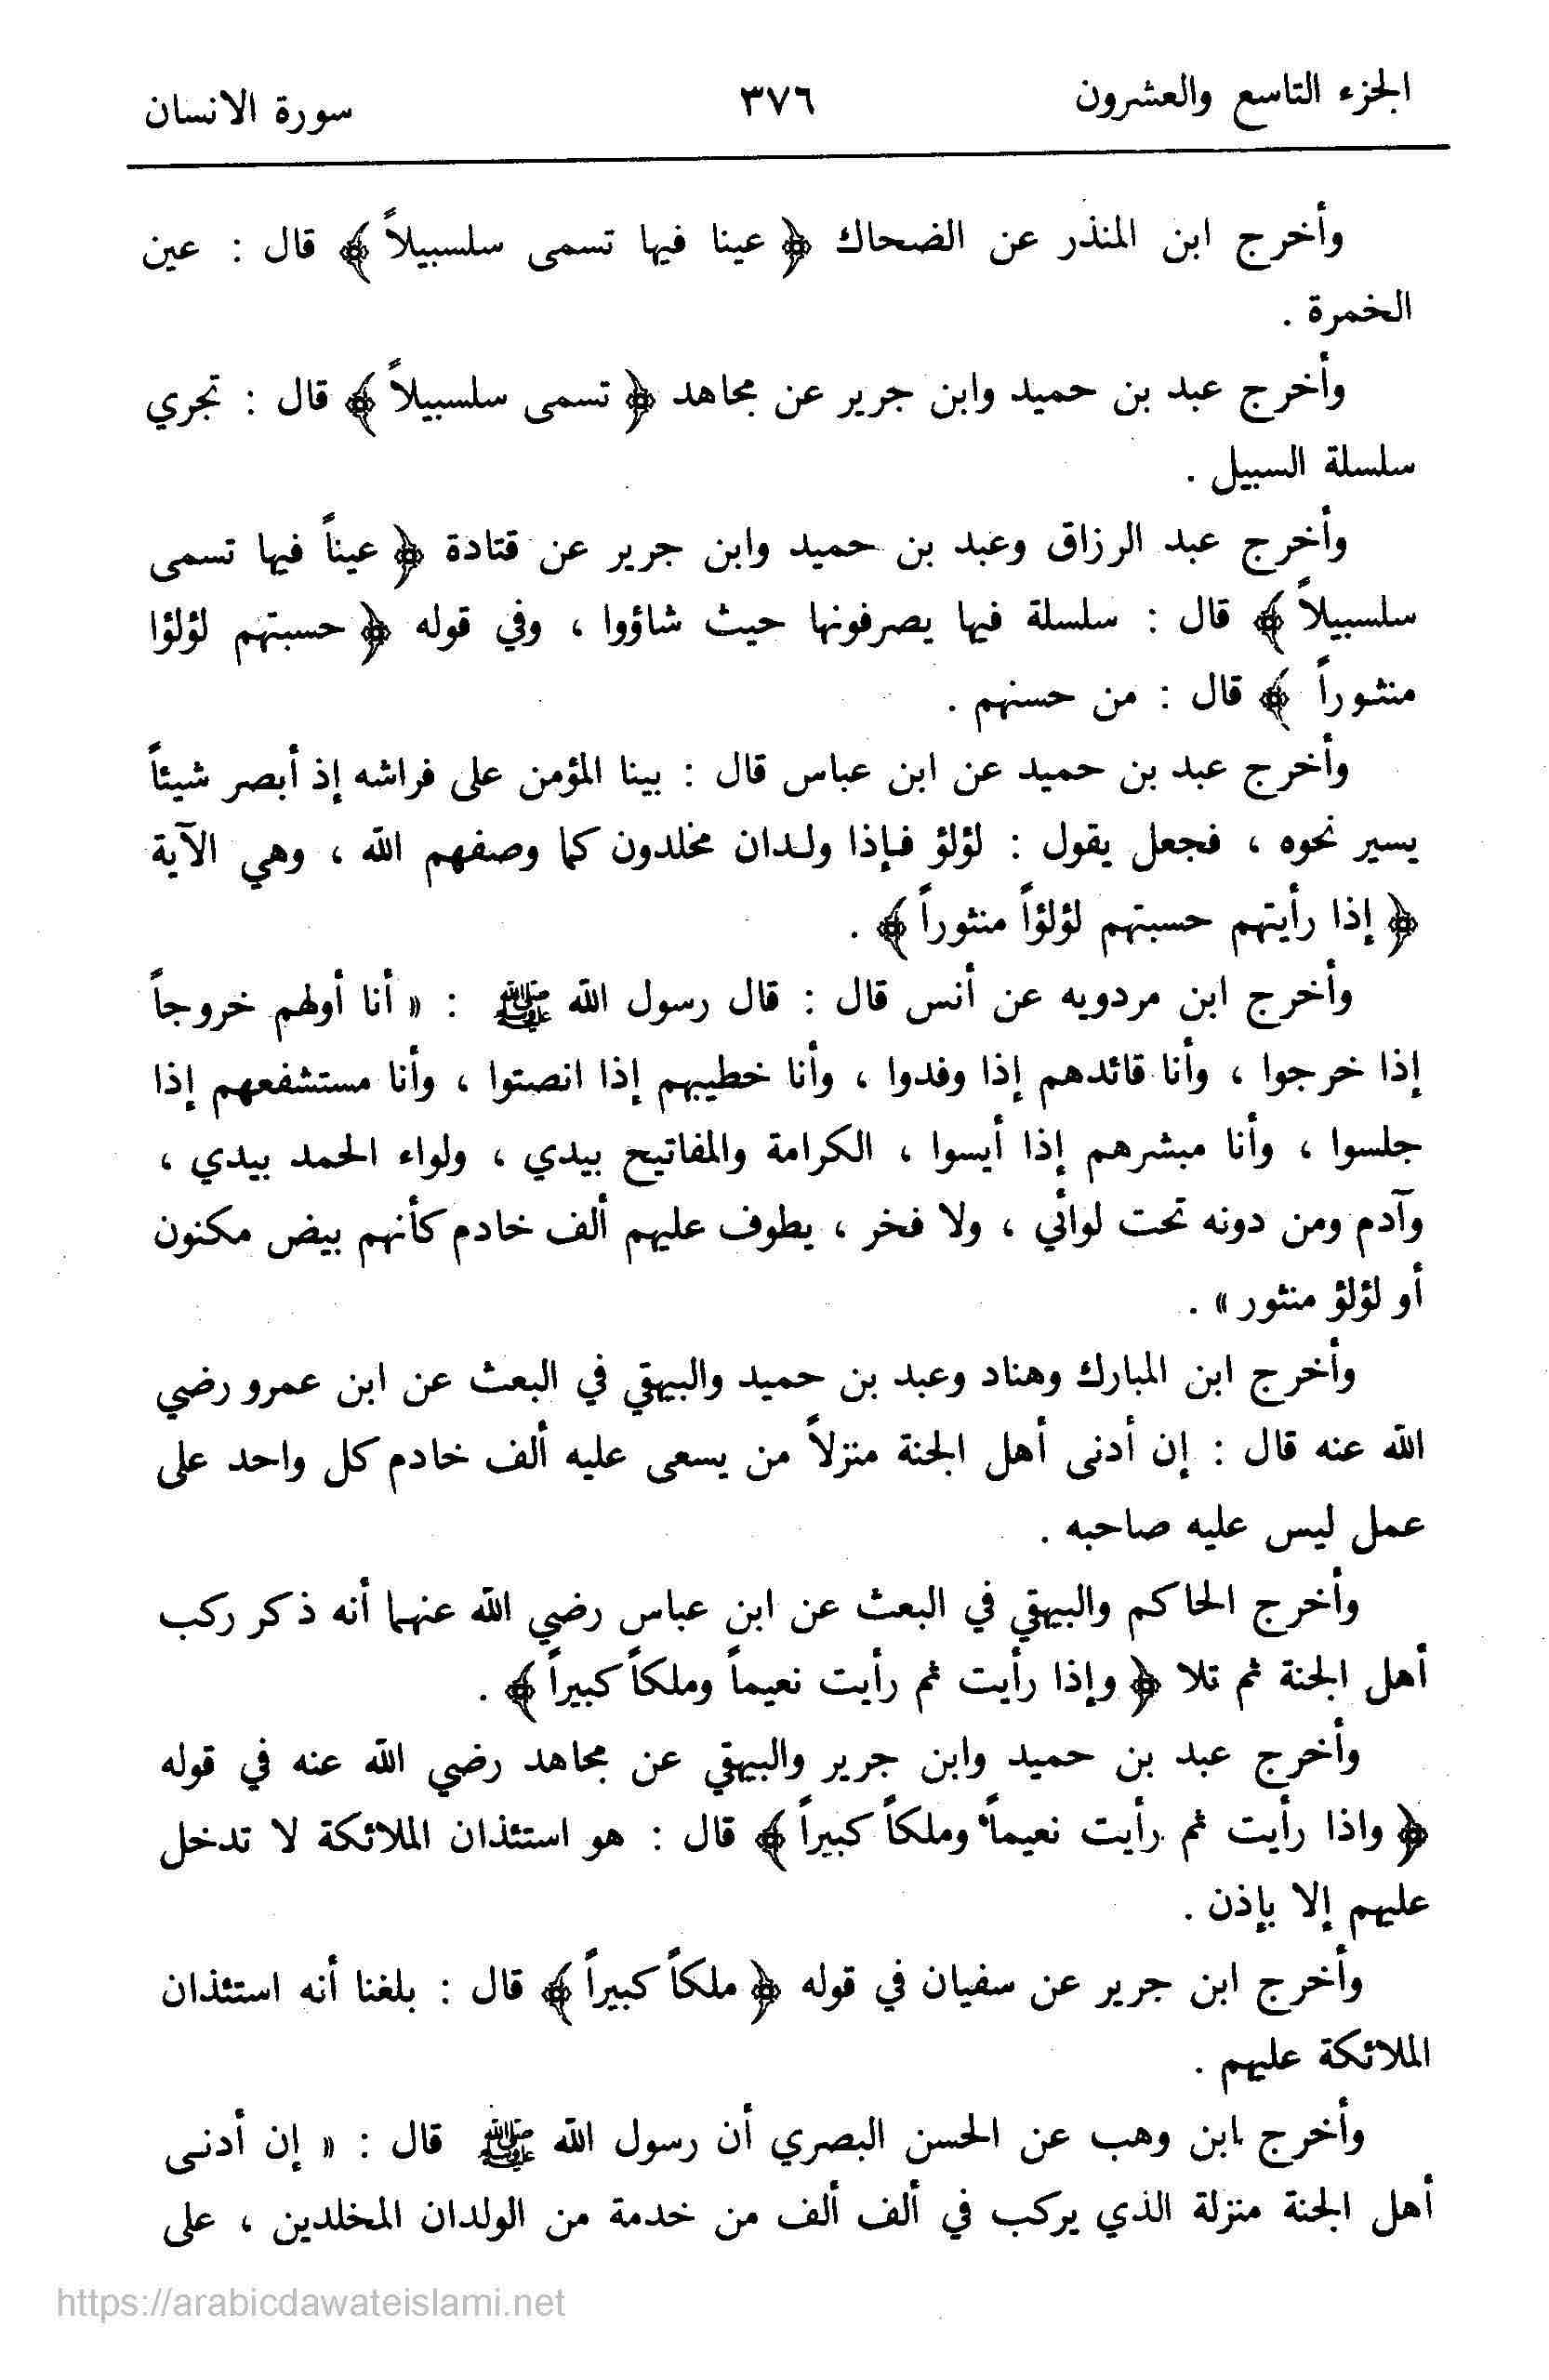 الجزء التاسع والعشرون ٣٧٦ سورة الانسان
وأخرج ابن المنذر عن الضحاك ﴿ عينا فيها تسمى سلسبيلاً ﴾ قال : عين
الخمرة .
وأخرج عبد بن حميد وابن جرير عن مجاهد ﴿ تسمى سلسبيلاً ﴾ قال : تجري
سلسلة السبيل .
وأخرج عبد الرزاق وعبد بن حميد وابن جرير عن قتادة ﴿ عيناً فيها تسمى
سلسبيلاً ﴾ قال : سلسلة فيها يصرفونها حيث شاؤوا ، وفي قوله ﴿ حسبتهم لؤلؤا
منثوراً ﴾ قال : من حسنهم .
وأخرج عبد بن حميد عن ابن عباس قال : بينا المؤمن على فراشه إذ أبصر شيئاً
يسير نحوه ، فجعل يقول : لؤلؤ فإذا ولدان مخلدون كما وصفهم الله ، وهي الآية
﴿ إذا رأيتهم حسبتهم لؤلؤاً منثوراً ﴾ .
وأخرج ابن مردويه عن أنس قال : قال رسول الله ﷺ : « أنا أولهم خروجاً
إذا خرجوا ، وأنا قائدهم إذا وفدوا ، وأنا خطيبهم إذا انصتوا ، وأنا مستشفعهم إذا
جلسوا ، وأنا مبشرهم إذا أيسوا ، الكرامة والمفاتيح بيدي ، ولواء الحمد بيدي ،
وآدم ومن دونه تحت لوائي ، ولا فخر ، يطوف عليهم ألف خادم كأنهم بيض مكنون
أو لؤلؤ منثور » .
وأخرج ابن المبارك وهناد وعبد بن حميد والبيهقي في البعث عن ابن عمرو رضي
الله عنه قال : إن أدنى أهل الجنة منزلاً من يسعى عليه ألف خادم كل واحد على
عمل ليس عليه صاحبه .
وأخرج الحاكم والبيهقي في البعث عن ابن عباس رضي الله عنهما أنه ذكر ركب
أهل الجنة ثم تلا ﴿ وإذا رأيت ثم رأيت نعيماً وملكاً كبيراً ﴾ .
وأخرج عبد بن حميد وابن جرير والبيهقي عن مجاهد رضي الله عنه في قوله
﴿ واذا رأيت ثم رأيت نعيماً وملكاً كبيراً ﴾ قال : هو استئذان الملائكة لا تدخل
عليهم إلا بإذن .
وأخرج ابن جرير عن سفيان في قوله ﴿ ملكاً كبيراً ﴾ قال : بلغنا أنه استئذان
الملائكة عليهم .
وأخرج ابن وهب عن الحسن البصري أن رسول الله ﷺ قال : « إن أدنى
أهل الجنة منزلة الذي يركب في ألف ألف من خدمة من الولدان المخلدين ، على
https://arabicdawateislami.net